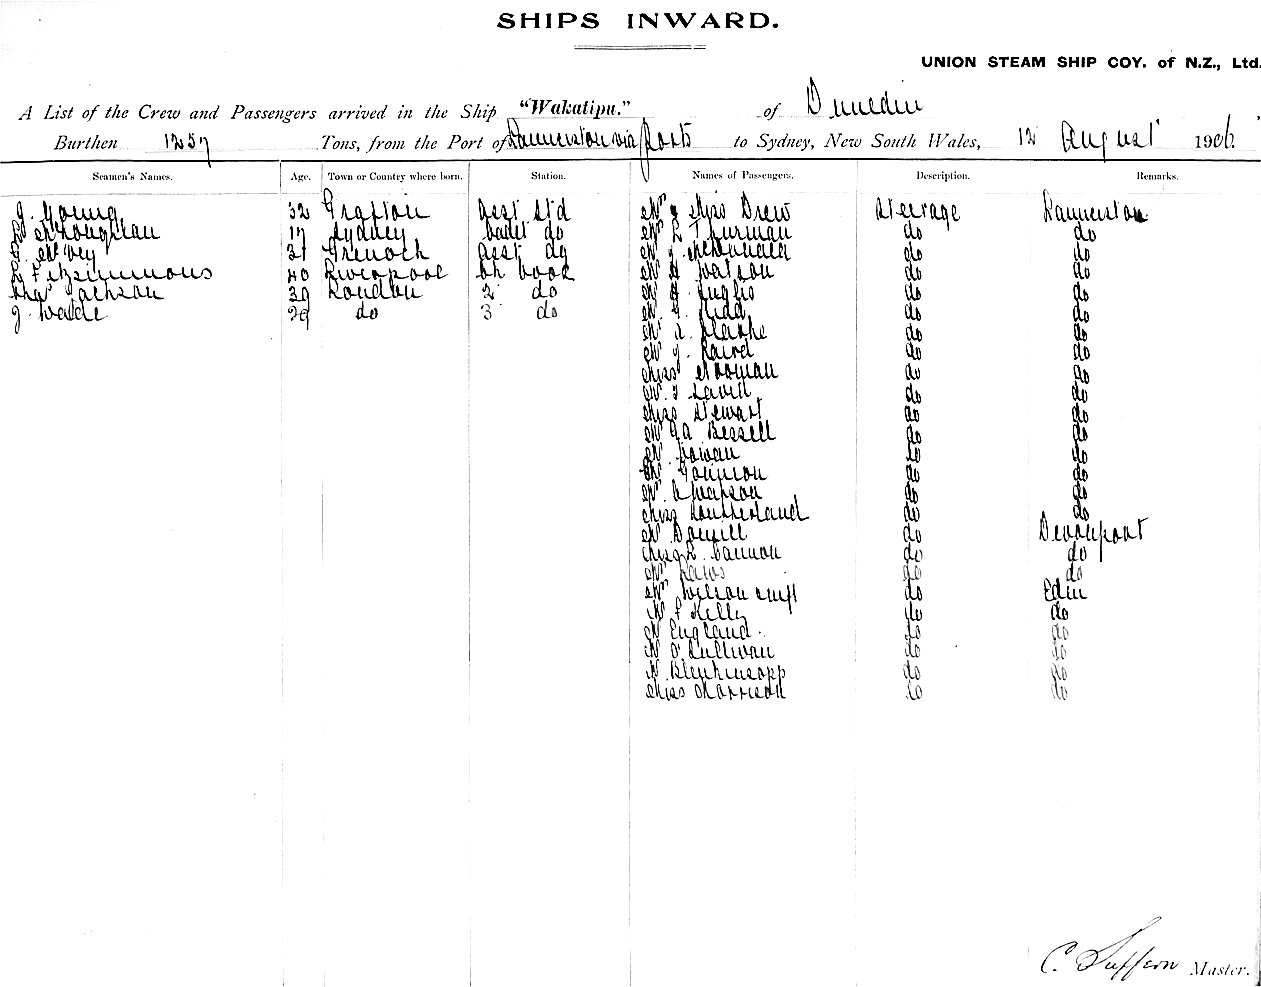 SHIPS INWARD.
UNION STEAM SHIP COY. of N.Z., Ltd.
A List of the Crew and Passengers arrived in the Ship "Wakatipu." of Dunedin
Burthen 1257 Tons, from the Port of Launceston via ports to Sydney, New South Wales, 12 August 1906
Seamen's Names. Age. Town or Country where born. Station. Names of Passengers. Description. Remarks.
J. Young 32 Grafton Asst Std Mr & Miss Drew Steerage Launceston
McLoughlan 17 Sydney Cadet do Mr do do
McVey 31 Grenoch Asst do Mr J. McDonald do do
Fitzsimmons 40 Liverpool Ch Cook Mr Watson do do
Chas Jackson 39 London 2 do Mr Inglis do do
J. Wade 29 do 3 do Mr Kidd do do
Mr do do
Mr J. Laird do do
Miss Norman do do
Mr Savill do do
Miss Stewart do do
Mr Bessell do do
Mr Cowan do do
Mr Gannon do do
Mr Simpson do do
Miss Southerland do do
Mr do Devonport
Cannon do do
Mr Laws do do
Mr Wilson & wife do Eden
Mr F Kelly do do
Mr England do do
Mr O'Sullivan do do
Mr Blenkinsopp do do
Miss Morrison do do
C. Suffern Master.